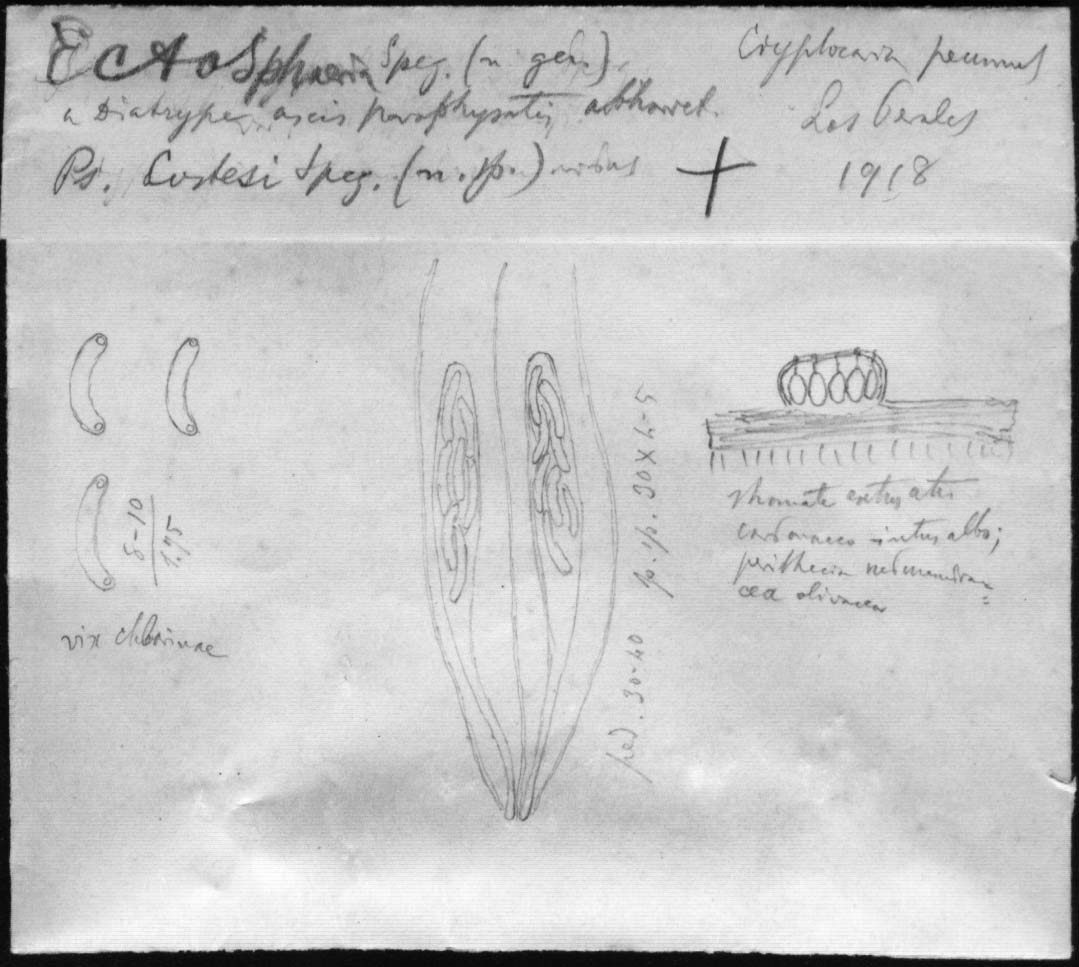 Ectosphaeria Speg. (n. gen.)
a Diatrype ascis paraphysatis abhorret.
Ps. Cortesi Speg. (n. sp.)
Cryptocaria peumus
Los Perales
1918
8-10
1.75
vix chlorinae
p. sp. 30 x 4-5
ped. 30-40
stromate extus atro
carbonaceo intus albo;
perithecia membrana=
cea olivacea